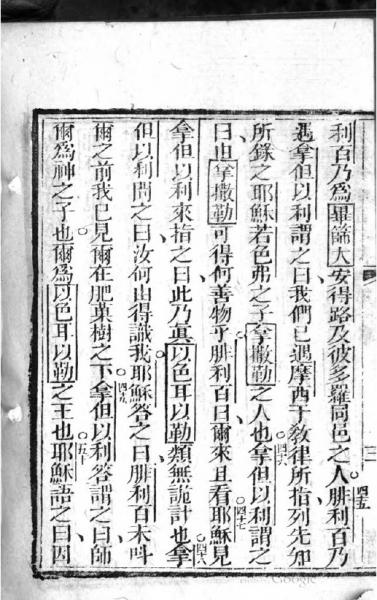 利百乃為畢篩大安得路及彼多羅同邑之人四五腓利百乃
遇拿但以利謂之曰我們已遇摩西于教律所指列先知
所錄之耶穌若色弗之子拿撒勒之人也四六拿但以利謂之
曰由拿撒勒可得何善物乎腓利百曰爾來且看四七耶穌見
拿但以利來指之曰此乃眞以色耳以勒類無詭計也四八拿
但以利問之曰汝何由得識我耶穌答之曰腓利百未呌
爾之前我已見爾在肥菓樹之下四九拿但以利答謂之曰師
爾爲神之子也爾爲以色耳以勒之王也五十耶穌語之曰因
Google